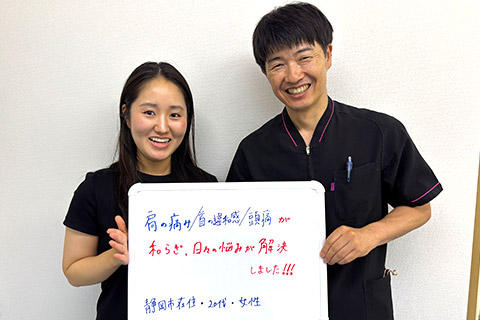 肩の痛み/首の違和感/頭痛が
和らぎ、日々の悩みが解決
しました!!!
静岡市在住・20代・女性